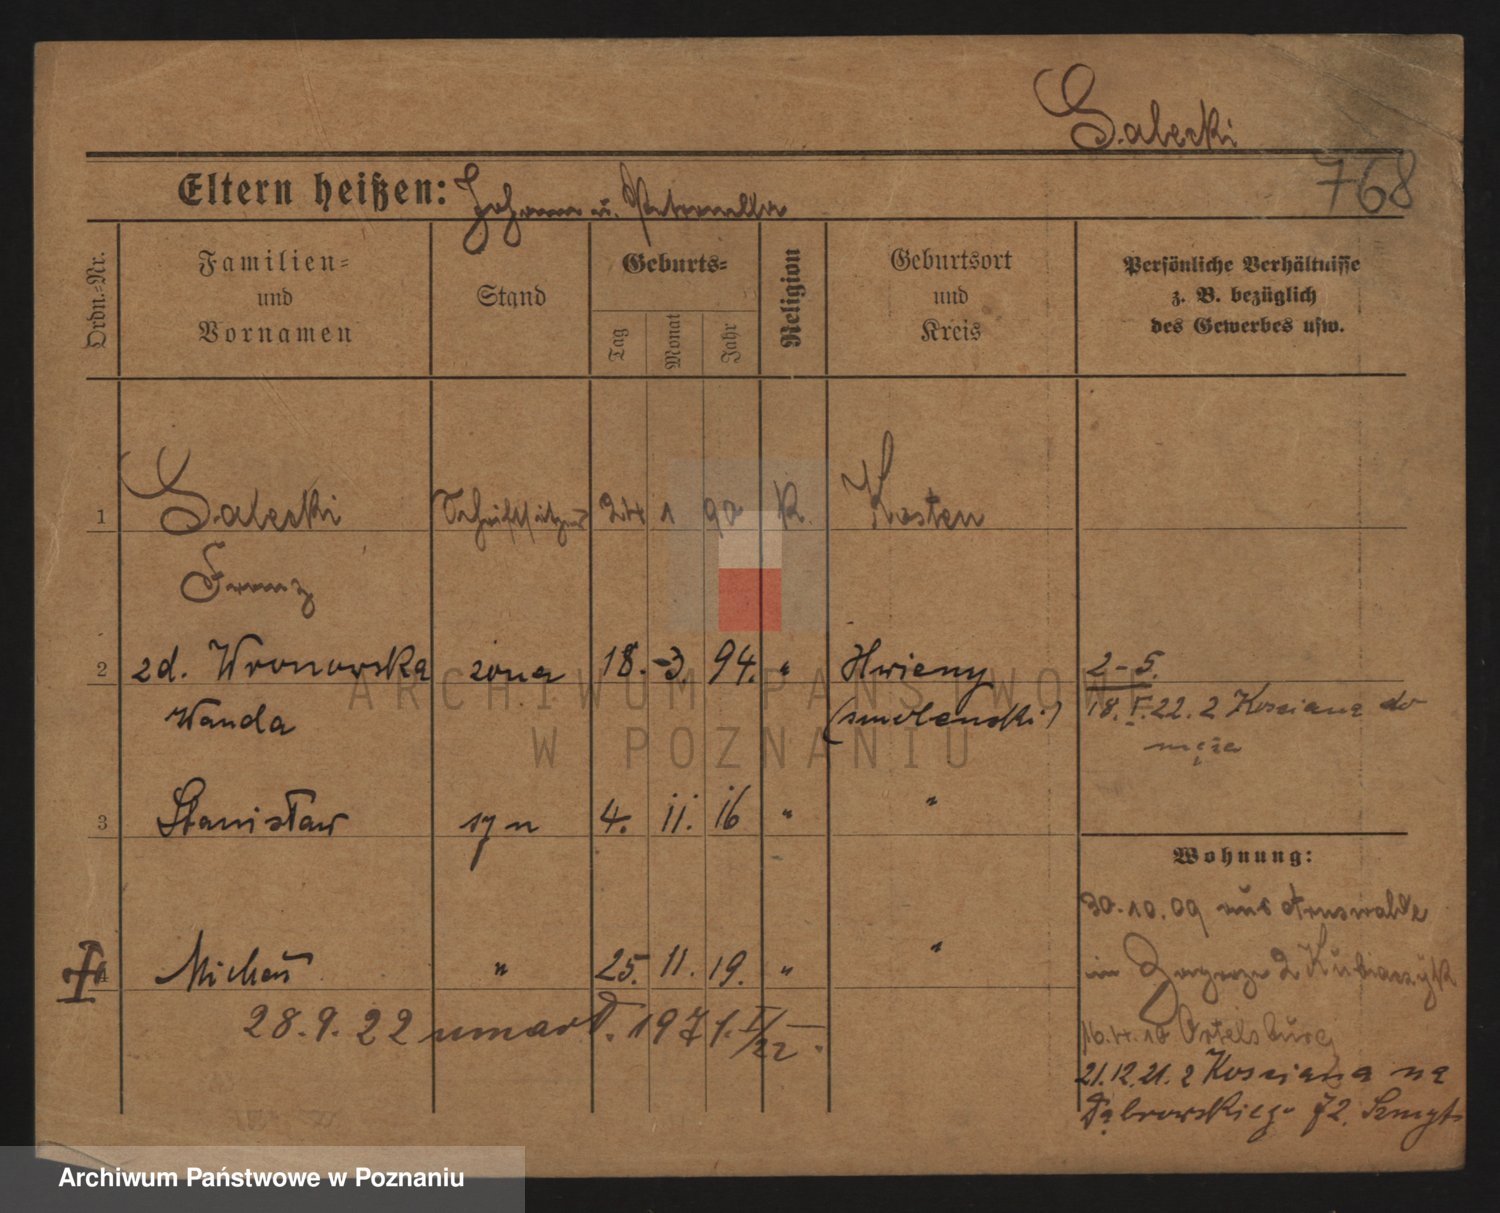 Salecki
768
Eltern heißen: Johann u. Petronella
Ordn.-Nr.
Familien-
und
Vornamen
Stand
Geburts-
Tag
Monat
Jahr
Religion
Geburtsort
und
Kreis
Persönliche Verhältnisse
z. B. bezüglich
des Gewerbes usw.
1 Salecki Schriftsetzer 24 1 90 K. Kosten
Franz
2 zd. Wronowska żona 18. 3. 94. "
2-5.
Wanda (smolenski) 18. I. 22. z Kościana do
męża
3 Stanisław syn 4. 11. 16 " "
Wohnung:
30.10.09 aus Arnswalde
4 Michał " 25. 11. 19. " "
28.9.22 umarł. 1971. I/22.
16.4.10 Ortelsburg
21.12.21. z Kościana na
Dąbrowskiego 72.
ARCHIWUM PAŃSTWOWE
W POZNANIU
Archiwum Państwowe w Poznaniu